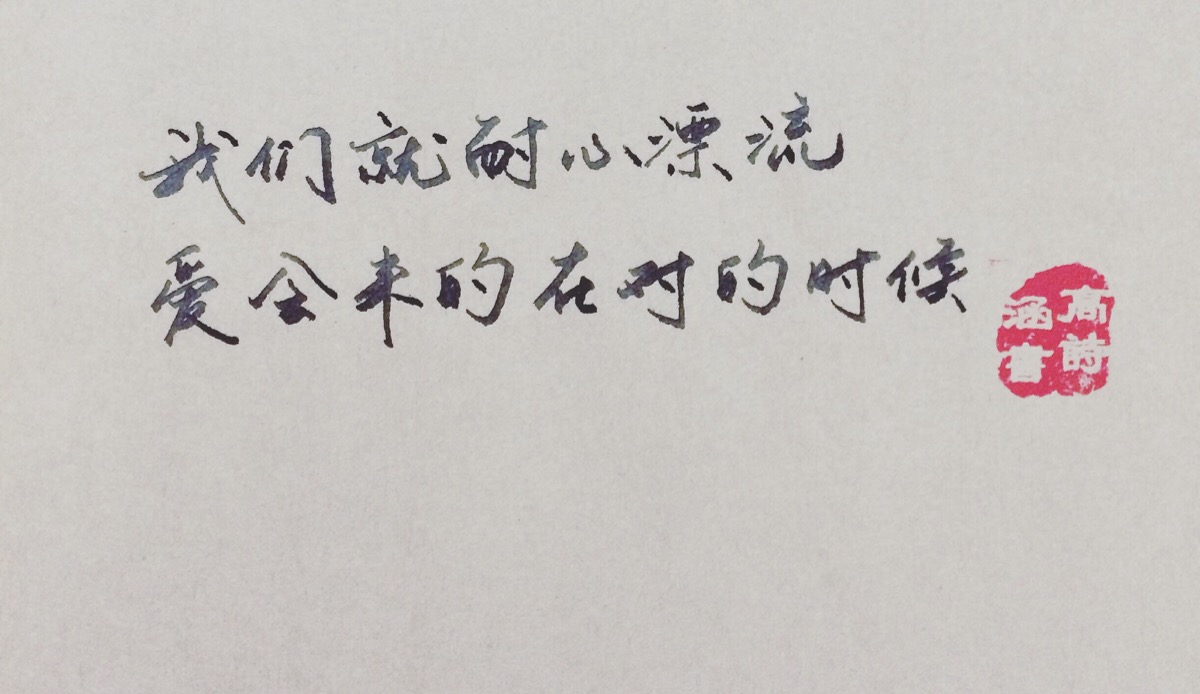 我们就耐心漂流
爱会来的在对的时候
高詩
涵書